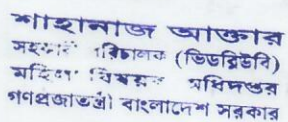 শাহানাজ আক্তার
সহকারী পরিচালক (ভিডব্লিউবি)
মহিলা বিষয়ক অধিদপ্তর
গণপ্রজাতন্ত্রী বাংলাদেশ সরকার